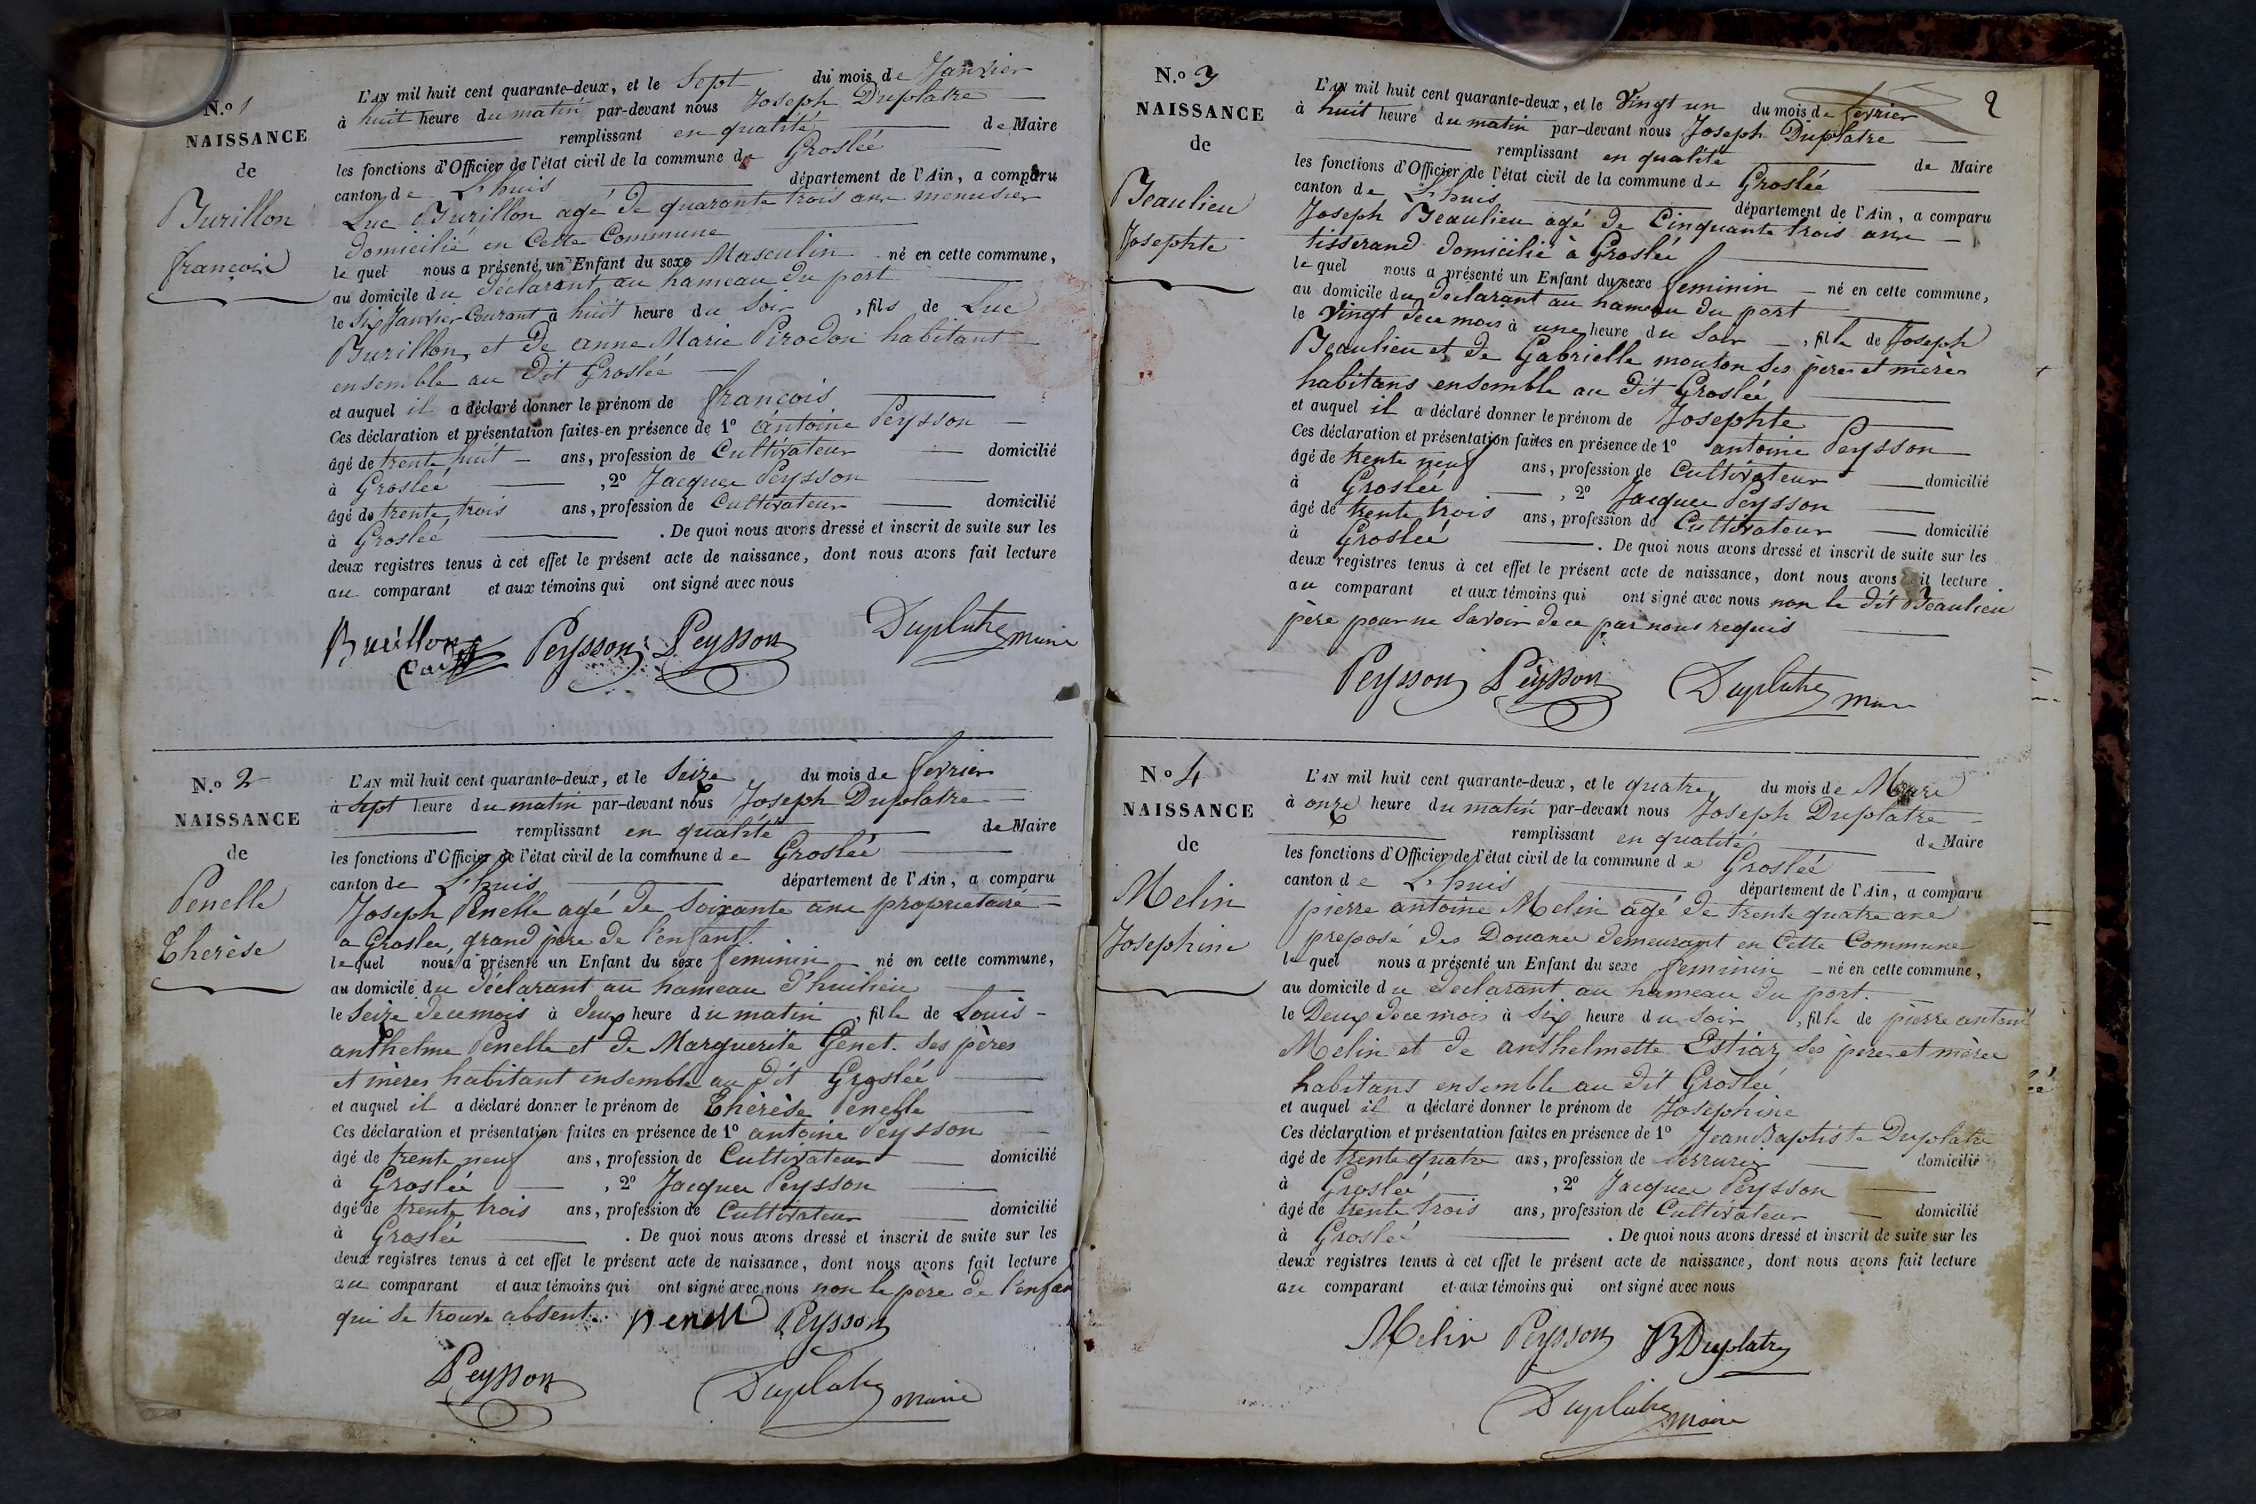 N.o 1
NAISSANCE
de
Burillon
françois
L'AN mil huit cent quarante-deux, et le Sept du mois de Janvier
à huit heure du matin par-devant nous Joseph Duplatre
remplissant en qualité de Maire
les fonctions d'Officier de l'état civil de la commune de Groslée
canton de L'huis département de l'Ain, a comparu
Luc Burillon agé de quarante trois ans menusier
domicilié en Cette Commune
le quel nous a présenté un Enfant du sexe Masculin né en cette commune,
au domicile du déclarant au hameau du port
le Six Janvier Courant à huit heure du Soir, fils de Luc
Burillon, et de anne Marie Pirodon habitant
ensemble au dit Groslée
et auquel il a déclaré donner le prénom de françois
Ces déclaration et présentation faites en présence de 1o antoine Peysson
âgé de trente huit ans, profession de Cultivateur domicilié
à Groslée, 2o Jacques Peysson
âgé de trente trois ans, profession de Cultivateur domicilié
à Groslée. De quoi nous avons dressé et inscrit de suite sur les
deux registres tenus à cet effet le présent acte de naissance, dont nous avons fait lecture
au comparant et aux témoins qui ont signé avec nous
Burillon Peysson Peysson Duplatre maire
N.o 2
NAISSANCE
de
Penelle
Therèse
L'AN mil huit cent quarante-deux, et le Seize du mois de fevrier
à Sept heure du matin par-devant nous Joseph Duplatre
remplissant en qualité de Maire
les fonctions d'Officier de l'état civil de la commune de Groslée
canton de L'huis département de l'Ain, a comparu
Joseph Penelle agé de Soixante ans proprietaire
a Groslée, grand père de l'enfant.
le quel nous a présenté un Enfant du sexe feminin né en cette commune,
au domicile du déclarant au hameau d'huilieu
le Seize de ce mois à deux heure du matin, fille de Louis
anthelme Penelle et de Marguerite Genet. Ses pères
et mères habitant ensemble au dit Groslée
et auquel il a déclaré donner le prénom de Thérèse Penelle
Ces déclaration et présentation faites en présence de 1o antoine Peysson
âgé de trente neuf ans, profession de Cultivateur domicilié
à Groslée, 2o Jacques Peysson
âgé de trente trois ans, profession de Cultivateur domicilié
à Groslée. De quoi nous avons dressé et inscrit de suite sur les
deux registres tenus à cet effet le présent acte de naissance, dont nous avons fait lecture
au comparant et aux témoins qui ont signé avec nous non le père de l'enfan
qui se trouve absent. Penell Peysson
Peysson Duplatre maire
2
N.o 3
NAISSANCE
de
Beaulieu
Josephte
L'AN mil huit cent quarante-deux, et le Vingt un du mois de fevrier
à huit heure du matin par-devant nous Joseph Duplatre
remplissant en qualité de Maire
les fonctions d'Officier de l'état civil de la commune de Groslée
canton de L'huis département de l'Ain, a comparu
Joseph Beaulieu agé de Cinquante trois ans
tisserand domicilié à Groslée
le quel nous a présenté un Enfant du sexe feminin né en cette commune,
au domicile du déclarant au hameau du port
le Vingt de ce mois à une heure du Soir, fille de Joseph
Beaulieu et de Gabrielle mouton Ses pères et mères
habitans ensemble au dit Groslée
et auquel il a déclaré donner le prénom de Josephte
Ces déclaration et présentation faites en présence de 1o antoine Peysson
âgé de trente neuf ans, profession de Cultivateur domicilié
à Groslée, 2o Jacques Peysson
âgé de trente trois ans, profession de Cultivateur domicilié
à Groslée. De quoi nous avons dressé et inscrit de suite sur les
deux registres tenus à cet effet le présent acte de naissance, dont nous avons fait lecture
au comparant et aux témoins qui ont signé avec nous non le dit Beaulieu
père pour ne Savoir de ce par nous requis
Peysson Peysson Duplatre
N.o 4
NAISSANCE
de
Melin
Josephine
L'AN mil huit cent quarante-deux, et le quatre du mois de Mars
à onze heure du matin par-devant nous Joseph Duplatre
remplissant en qualité de Maire
les fonctions d'Officier de l'état civil de la commune de Groslée
canton de L'huis département de l'Ain, a comparu
pierre antoine Melin agé de trente quatre ans
preposé des Douanes demeurant en Cette Commune
le quel nous a présenté un Enfant du sexe feminin né en cette commune,
au domicile du declarant au hameau du port.
le Deux de ce mois à Six heure du Soir, fille de pierre antoine
Melin et de anthelmette Estiaz Ses pères et mères
habitans ensemble au dit Groslée
et auquel il a déclaré donner le prénom de Josephine
Ces déclaration et présentation faites en présence de 1o Jean Baptiste Duplatre
âgé de trente quatre ans, profession de Serrurier domicilié
à Groslée, 2o Jacques Peysson
âgé de trente trois ans, profession de Cultivateur domicilié
à Groslée. De quoi nous avons dressé et inscrit de suite sur les
deux registres tenus à cet effet le présent acte de naissance, dont nous avons fait lecture
au comparant et aux témoins qui ont signé avec nous
Melin Peysson JB Duplatre
Duplatre maire